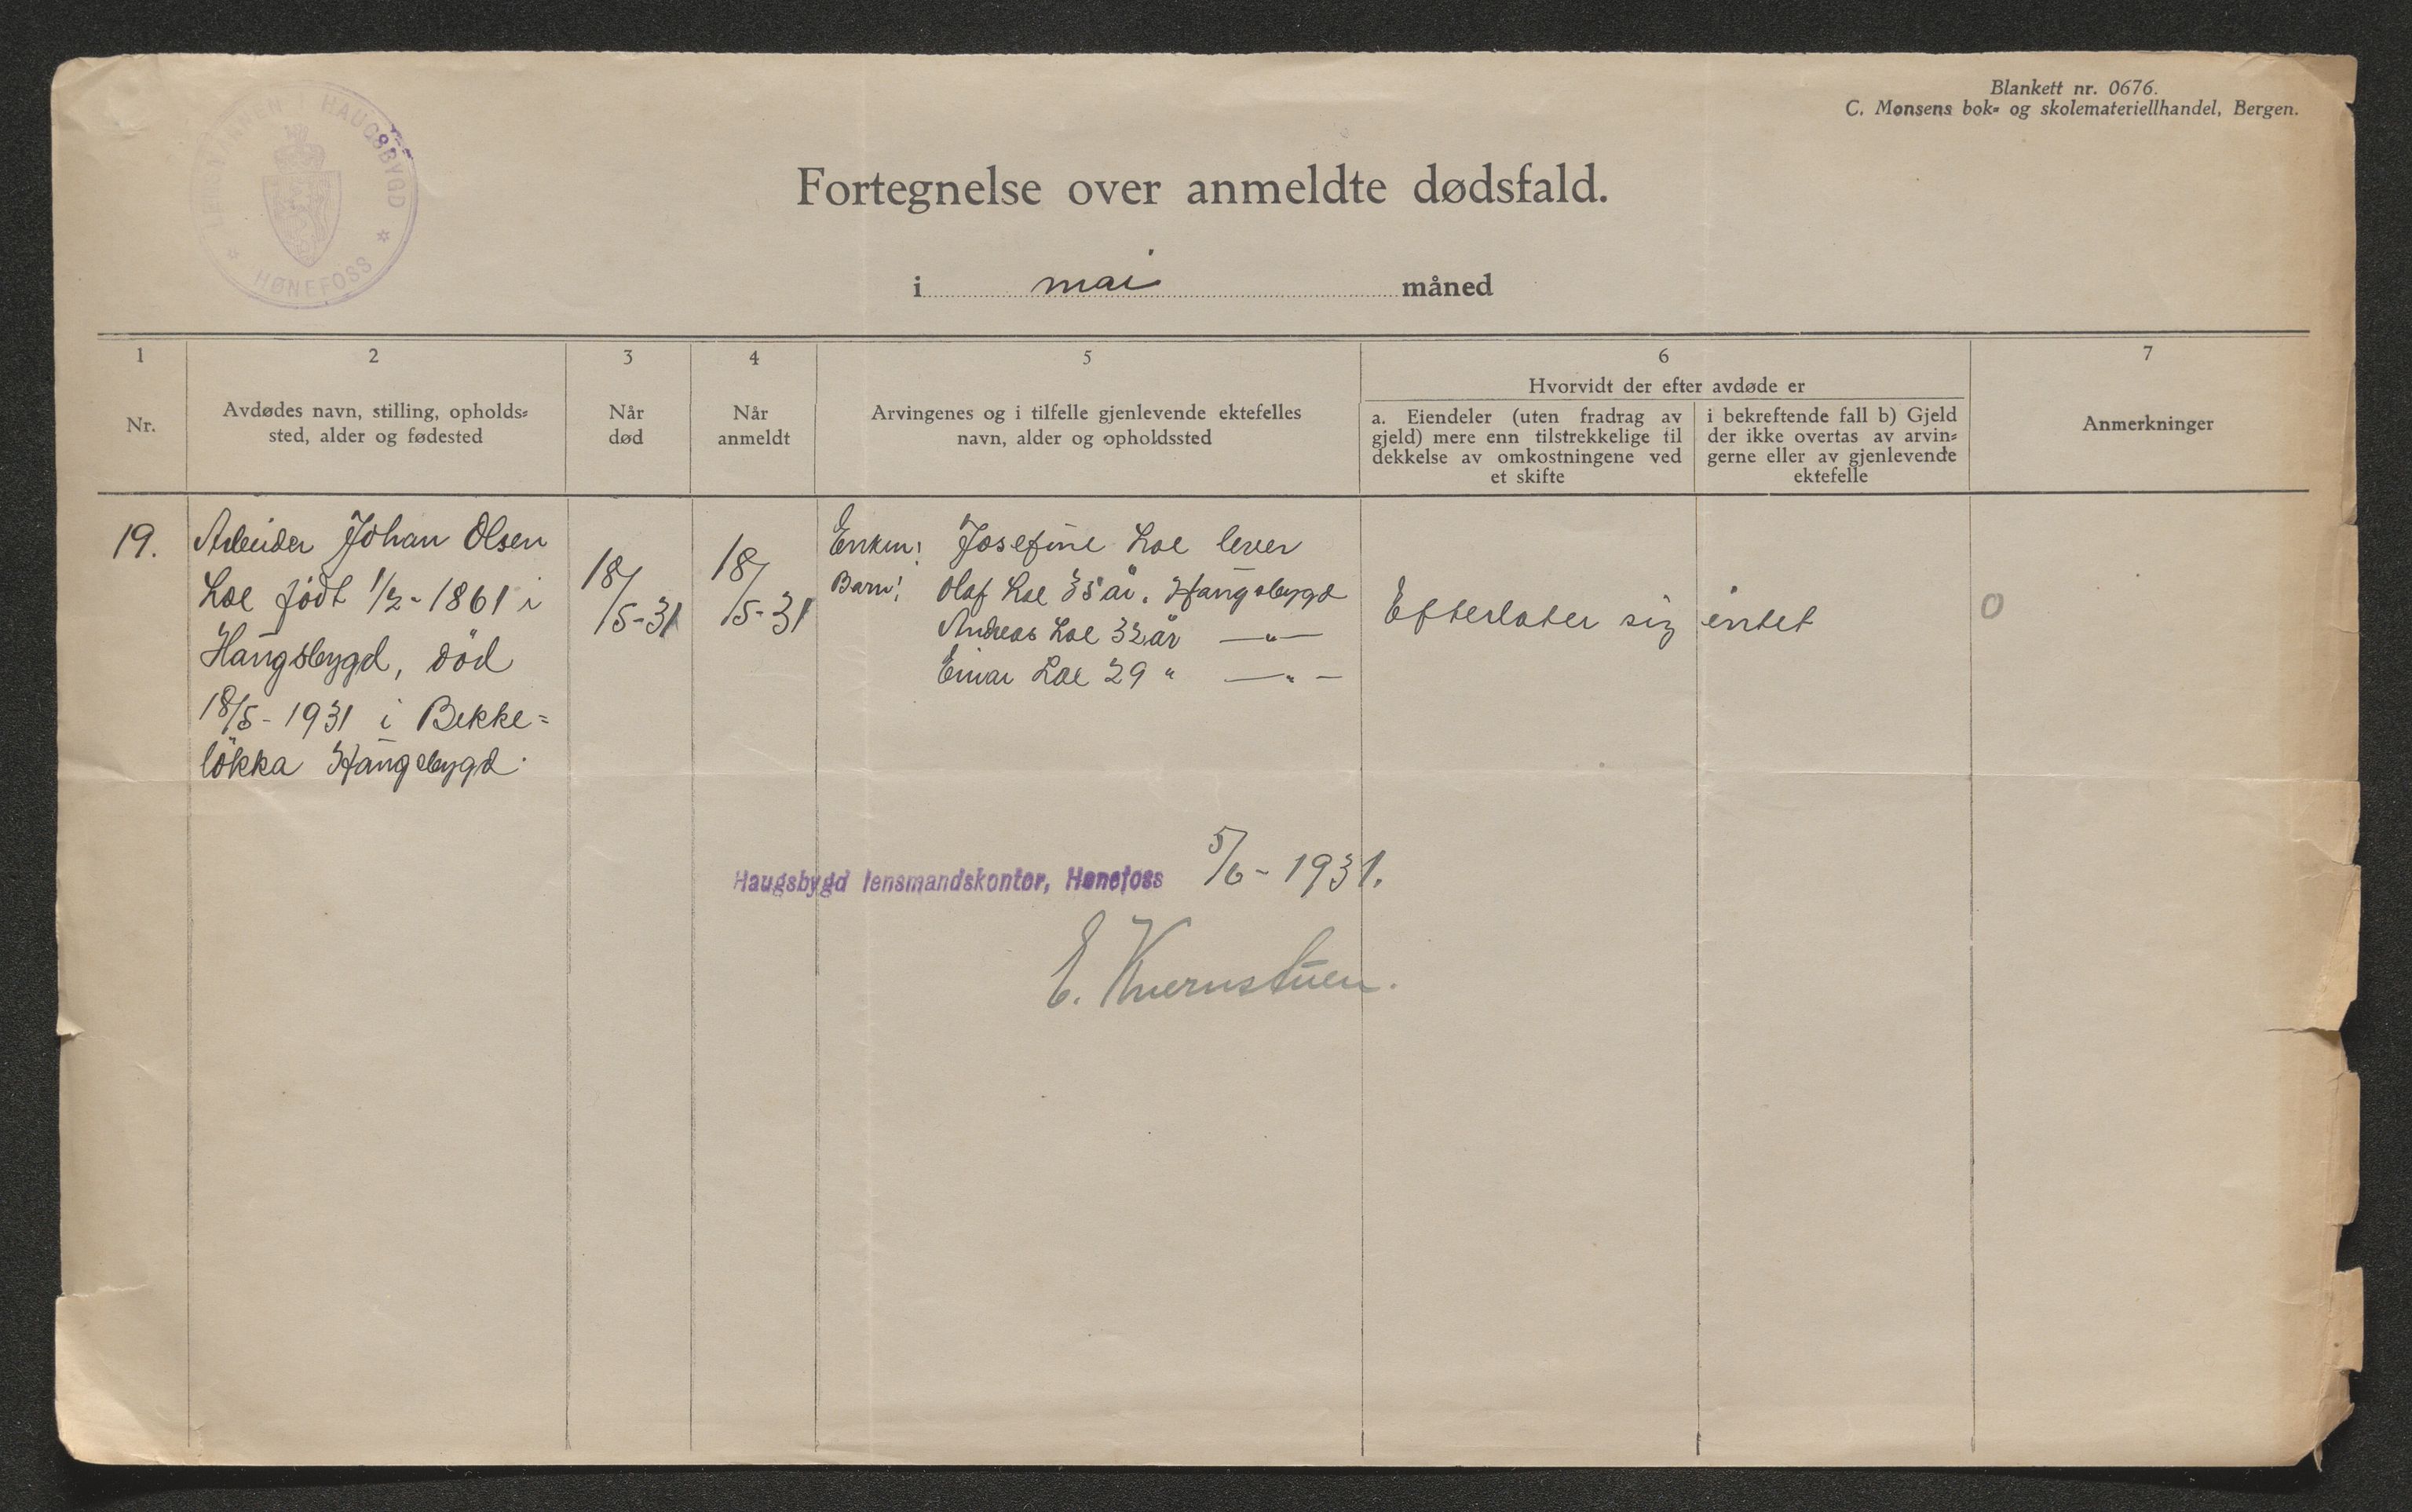 LENSMANNEN I HAUGSBYGD
HØNEFOSS
Blankett nr. 0676.
C. Monsens bok- og skolemateriellhandel, Bergen.
Fortegnelse over anmeldte dødsfald.
i mai måned
1
Nr.
2
Avdødes navn, stilling, opholds-
sted, alder og fødested
3
Når
død
4
Når
anmeldt
5
Arvingenes og i tilfelle gjenlevende ektefelles
navn, alder og opholdssted
6
Hvorvidt der efter avdøde er
a. Eiendeler (uten fradrag av
gjeld) mere enn tilstrekkelige til
dekkelse av omkostningene ved
et skifte
i bekreftende fall b) Gjeld
der ikke overtas av arvin-
gerne eller av gjenlevende
ektefelle
7
Anmerkninger
19.
Arbeider Johan Olsen
Loe født 1/2-1861 i
Haugsbygd, död
18/5-1931 i Bekke=
lökka Haugsbygd.
18/5-31
18/5-31
Enken: Josefine Loe lever
Barn: Olaf Loe 35 år. Haugsbygd
Andreas Loe 32 år —"—
Einar Loe 29 " —"—
Efterlater sig intet
0
Haugsbygd lensmandskontor, Hønefoss 5/6-1931.
E. Kvernstuen.